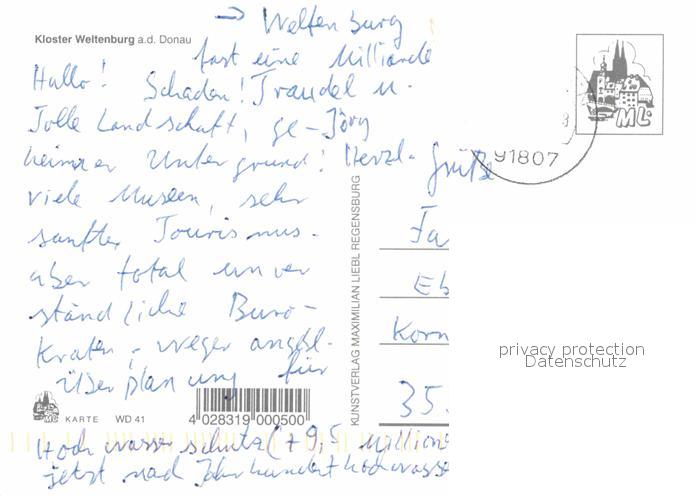 → Weltenburg
Kloster Weltenburg a.d. Donau
fast eine Milliarde
Hallo! Schaden! Traudel u.
Tolle Landschaft, ge- Jörg
heimer Untergrund! Herzl. Grüße
viele Museen, sehr
sanfter Tourismus.
aber total unver
ständliche Büro-
kraten - wegen angebl.
Überplanung für
KARTE WD 41
4 028319 000500
Hochwasserschutz (+ 9,5 Million
jetzt nach Jahrhunderthochwasse
KUNSTVERLAG MAXIMILIAN LIEBL REGENSBURG
ML
91807
Fa
Eb
Korn
35.
privacy protection
Datenschutz